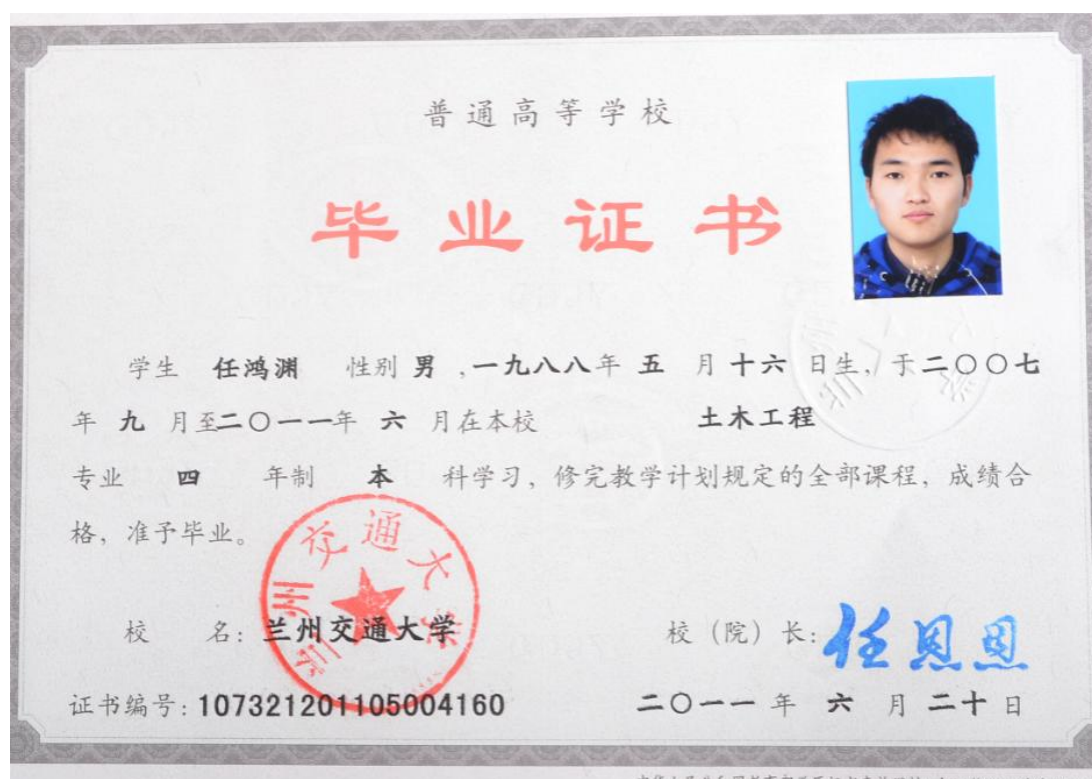 普通高等学校
毕业证书
学生 任鸿渊 性别 男 ,一九八八年 五 月 十六 日生, 于二〇〇七
年 九 月至二〇一一年 六 月在本校 土木工程
专业 四 年制 本 科学习, 修完教学计划规定的全部课程, 成绩合
格, 准予毕业。
兰州交通大学
校 名: 兰州交通大学 校 (院) 长: 任恩恩
证书编号: 107321201105004160 二〇一一 年 六 月 二十 日